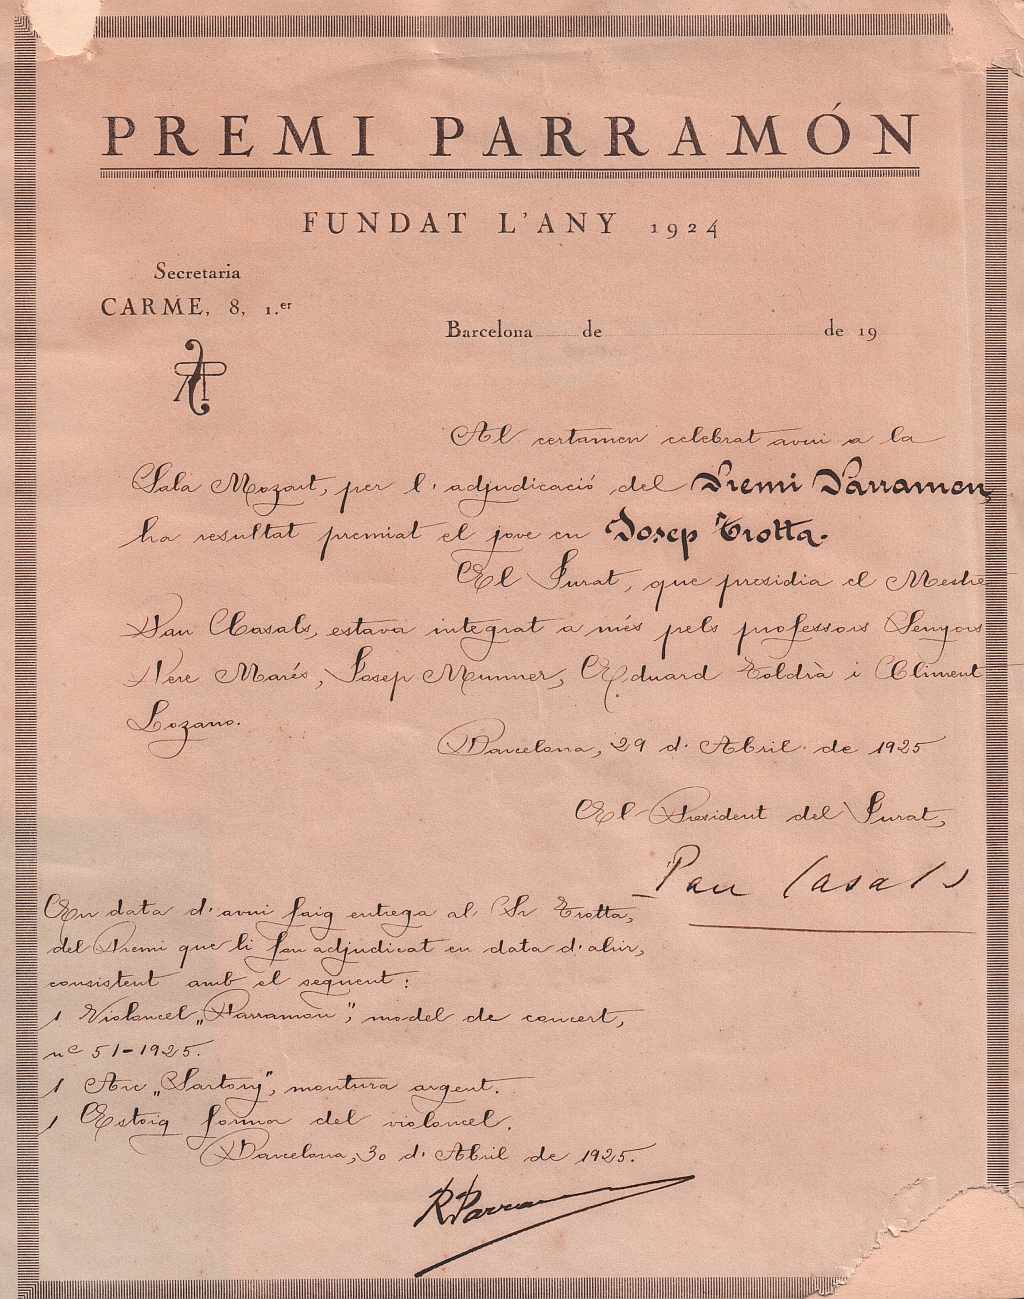 PREMI PARRAMÓN
FUNDAT L'ANY 1924
Secretaria
CARME, 8, 1.er
Barcelona de de 19
Al certamen celebrat avui a la
Sala Mozart, per l'adjudicació del Premi Parramon,
ha resultat premiat el jove en Josep Trotta.
El Jurat, que presidia el Mestre
Pau Casals, estava integrat a més pels professors Senyors
Pere Marés, Josep Munner, Eduard Toldrà i Climent
Lozano.
Barcelona, 29 d'Abril de 1925
El President del Jurat,
Pau Casals
En data d'avui faig entrega al Sr Trotta,
del Premi que li fou adjudicat en data d'ahir,
consistent amb el seguent:
1 Violoncel „Parramon", model de concert,
nº 51-1925.
1 Arc „Sartory", montura argent.
1 Estoig forma del violoncel.
Barcelona, 30 d'Abril de 1925.
R. Parramon